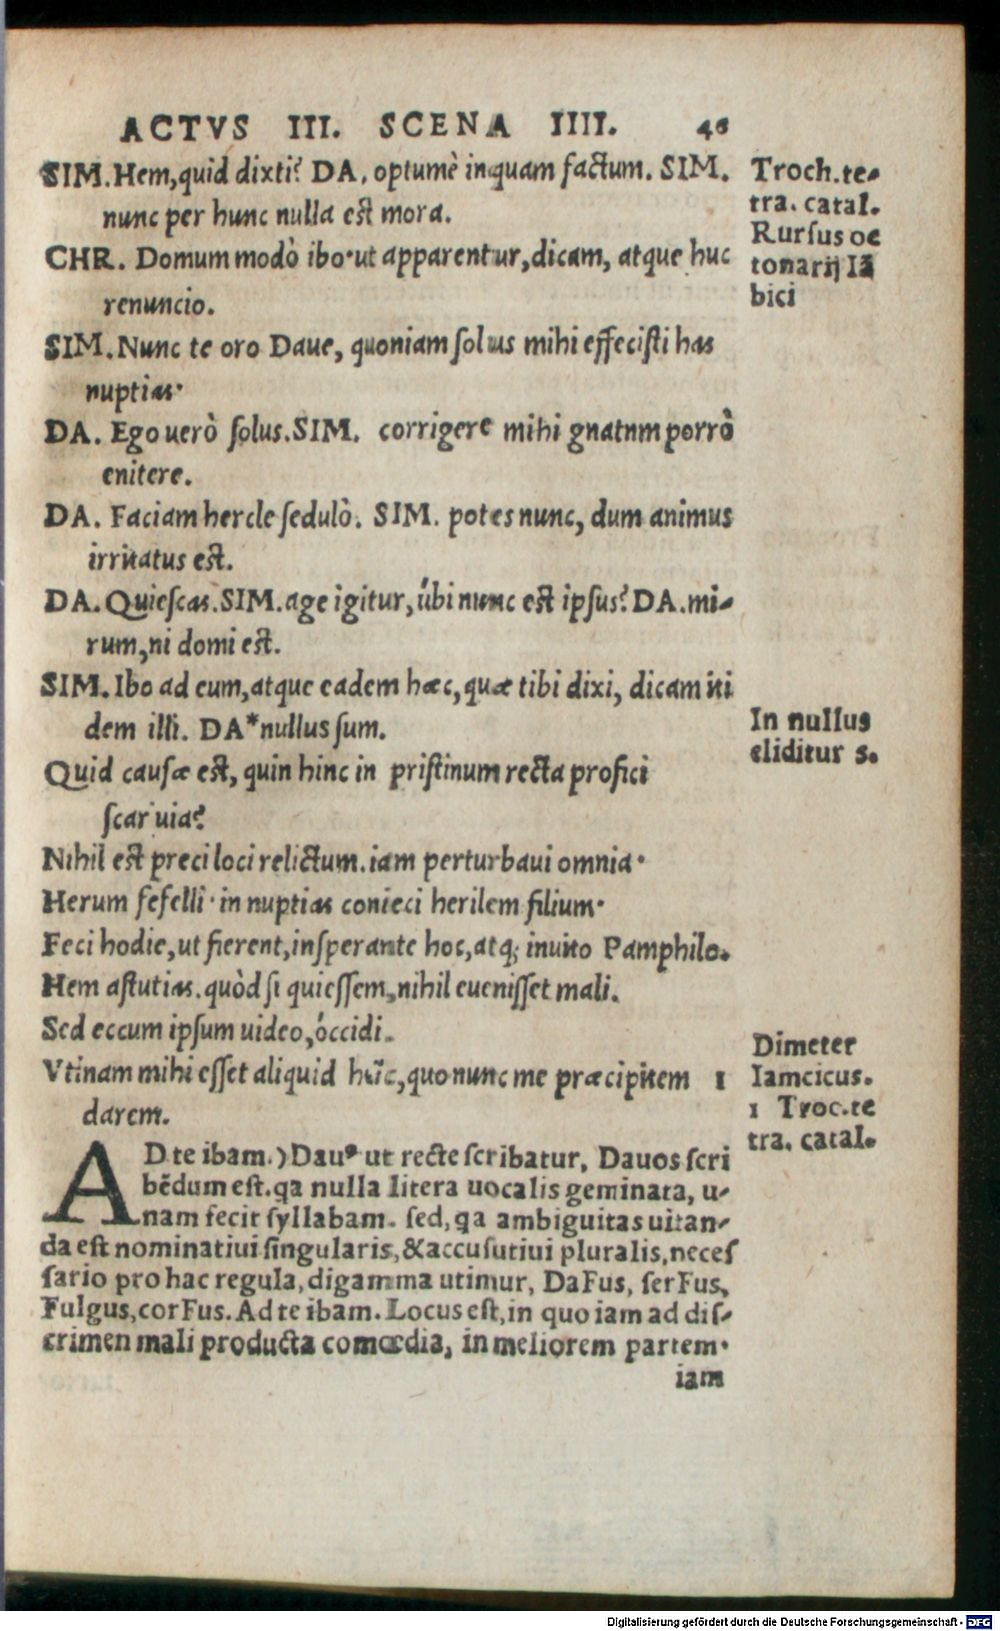 ACTVS III. SCENA IIII. 46
SIM. Hem, quid dixti? DA. optumè inquam factum. SIM.
nunc per hunc nulla est mora.
CHR. Domum modò ibo·ut apparentur, dicam, atque huc
renuncio.
SIM. Nunc te oro Daue, quoniam solus mihi effecisti has
nuptias·
DA. Ego uerò solus. SIM. corrigere mihi gnatnm porrò
enitere.
DA. Faciam hercle sedulò. SIM. potes nunc, dum animus
irritatus est.
DA. Quiescas. SIM. age igitur, úbi nunc est ipsus? DA. mi-
rum, ni domi est.
SIM. Ibo ad eum, atque eadem hæc, quæ tibi dixi, dicam iti
dem illi. DA* nullus sum.
Quid causæ est, quin hinc in pristinum recta profici
scar uia?
Nihil est preci loci relictum. iam perturbaui omnia·
Herum fefelli· in nuptias conieci herilem filium·
Feci hodie, ut fierent, insperante hoc, atq; inuito Pamphilo.
Hem astutias. quòd si quiessem, nihil euenisset mali.
Sed eccum ipsum uideo, óccidi.
Vtinam mihi esset aliquid hîc, quo nunc me præcipitem 1
darem.
AD te ibam.) Dauº ut recte scribatur, Davos scri
bēdum est. qa nulla litera uocalis geminata, u-
nam fecit syllabam. sed, qa ambiguitas uitan-
da est nominatiui singularis, & accusutiui pluralis, neces
sario pro hac regula, digamma utimur, DaFus, serFus,
Fulgus, corFus. Ad te ibam. Locus est, in quo iam ad dis-
crimen mali producta comœdia, in meliorem partem·
iam
Troch. te-
tra. catal.
Rursus oc
tonarij Iā
bici
In nullus
eliditur s.
Dimeter
Iamcicus.
1 Troc. te
tra. catal.
Digitalisierung gefördert durch die Deutsche Forschungsgemeinschaft - DFG